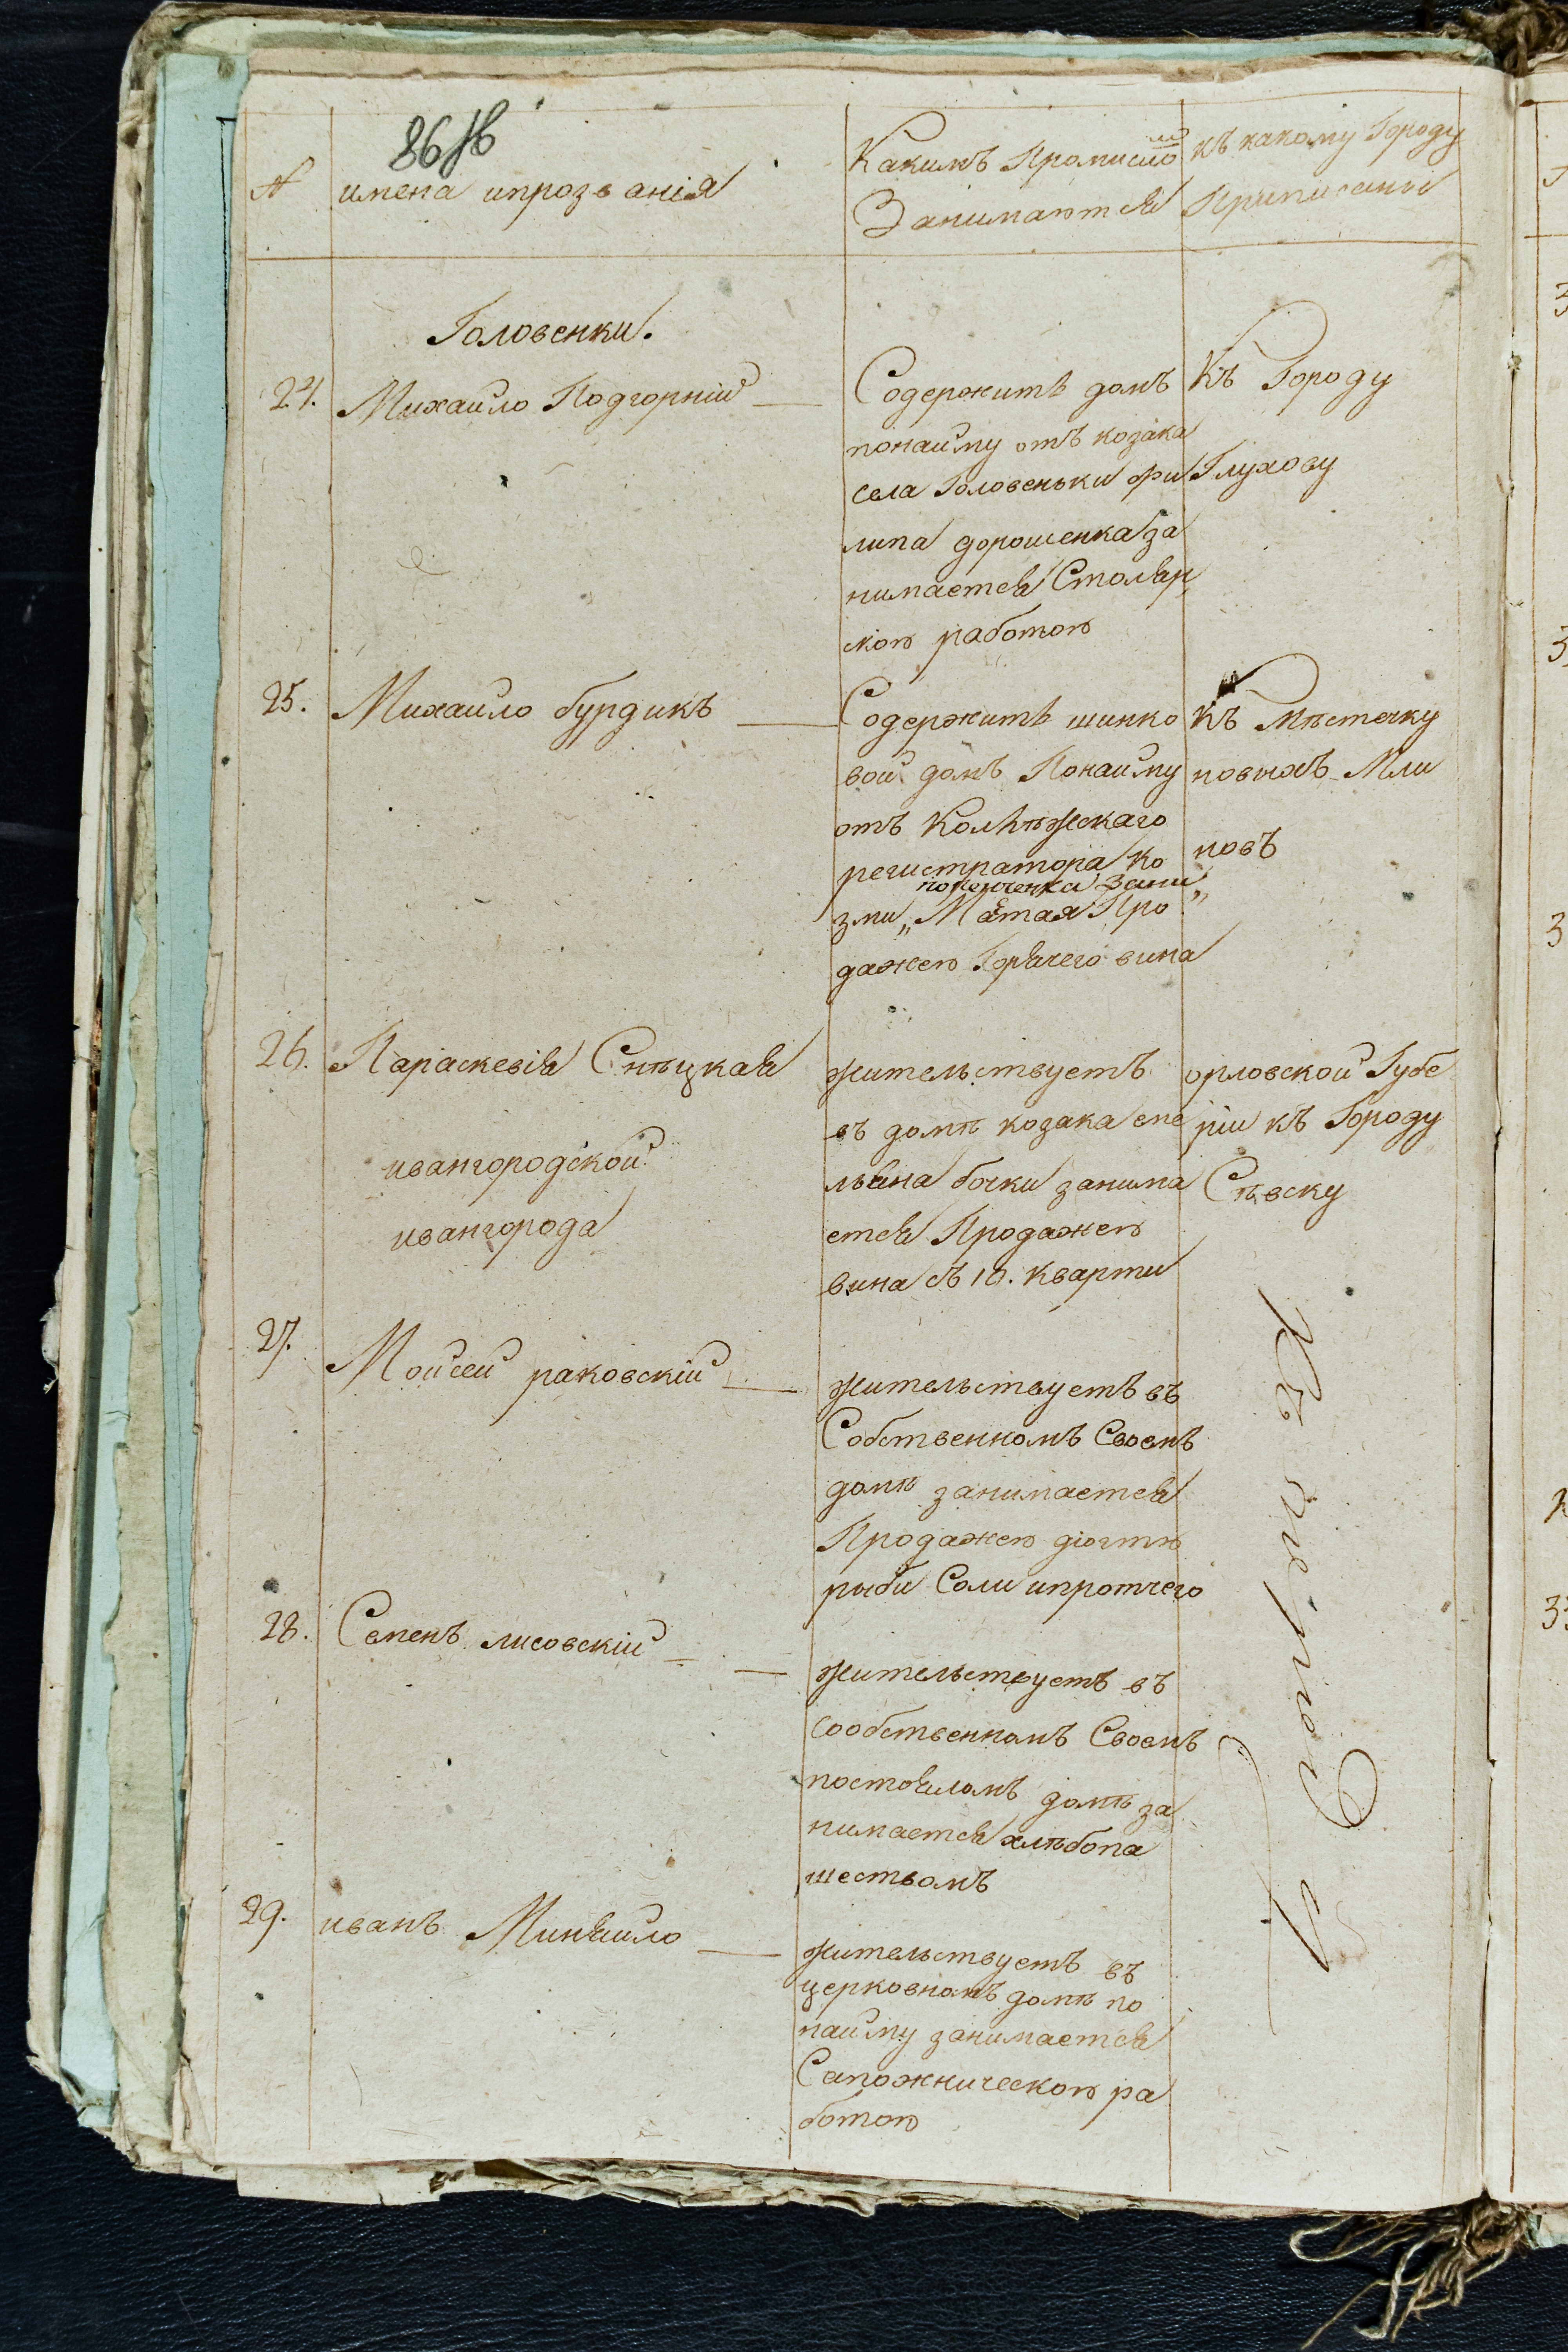 86
№
имена ипрозванія
Какимъ Промисло мъ
Занимаются
къ какому Городу
Приписаны
Головенки.
24.
Михайло Подгорній
Содержитъ домъ
понайму отъ козака
села Головеньки фи
липа дорошенка за
нимается Столяр„
скою работою
Къ Городу
Глухову
25.
Михайло бурдикъ
Содержитъ шинко
вой домъ Понайму
отъ Колѣжскаго
регистратора Ко
зми „
Мается Про
дажею Горячего вина
Къ Мѣстечку
новыхъ Мли
новъ
26.
Параскевія Снѣцкая
ивангородской
ивангорода
жительствуетъ
въ домѣ козака еме
льяна бочки занима
ется Продажею
вина съ 10. кварти
орловской Губе
рніи къ Городу
Сѣвску
27.
Мойсей раковскій
жительствуетъ въ
Собственномъ Своемъ
домѣ занимается
Продажею діогтю
рыби Соли ипротчего
28.
Семенъ лисовскій
жительствуетъ въ
сообственномъ Своемъ
постояломъ домѣ за
нимается хлѣбопа
шествомъ
29.
иванъ Миняйло
жительствуетъ въ
церковномъ домѣ по
найму занимается
Сапожническою ра
ботою